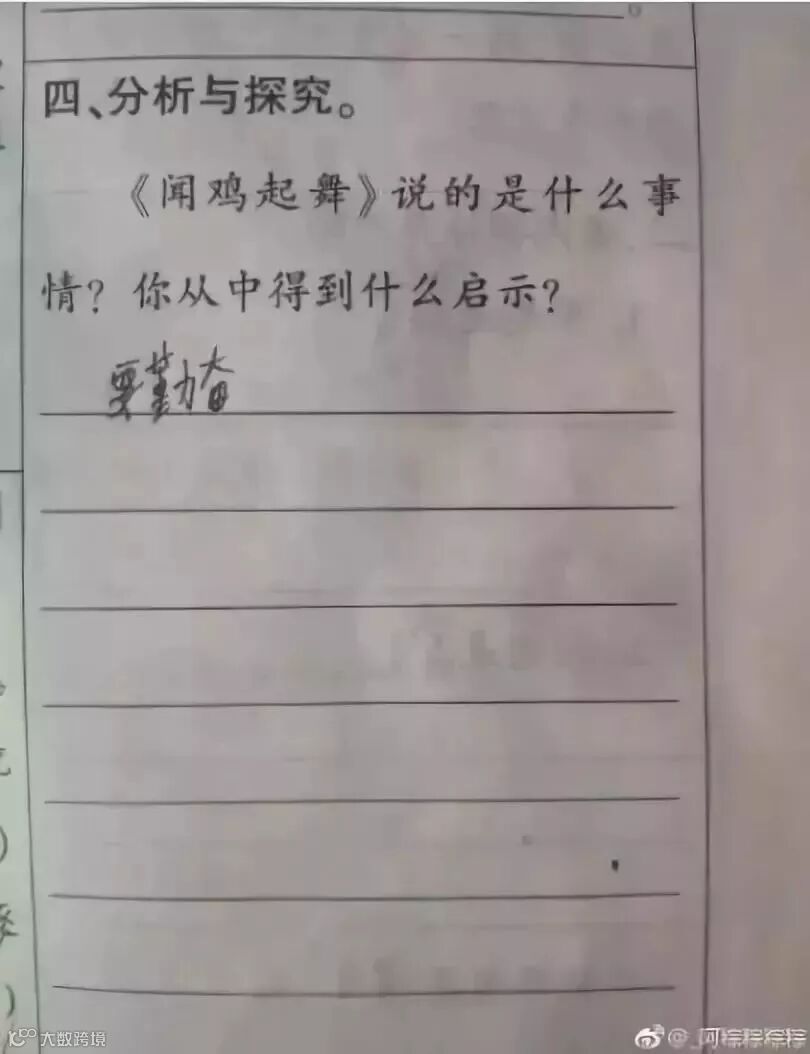 四、分析与探究。
《闻鸡起舞》说的是什么事
情？你从中得到什么启示？
要勤奋
大数跨境